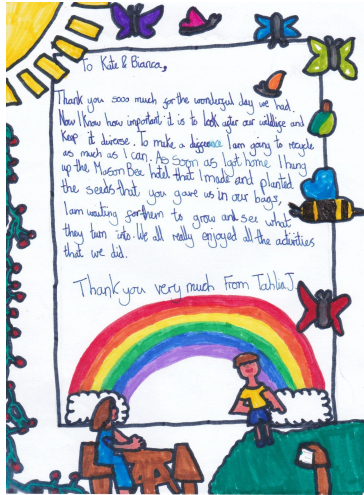 To Kate & Bianca,
Thank you sooo much for the wonderful day we had.
Now I know how important it is to look after our wildlife and
keep it diverse. To make a difference I am going to recycle
as much as I can. As soon as I got home I hung
up the Mason Bee hotel that I made and planted
the seeds that you gave us in our bags,
I am waiting for them to grow and see what
they turn into. We all really enjoyed all the activities
that we did.
Thank you very much From Tahlia J.